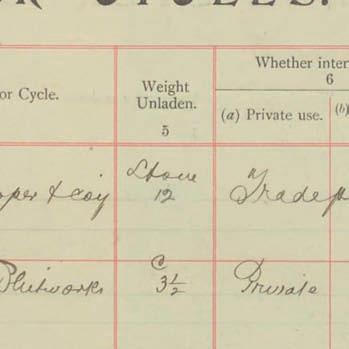 OR CYCLES.
or Cycle.
Weight
Unladen.
5
Whether inter
6
(a) Private use.
(b)
Stone
12
Trade p
C
3½
Private